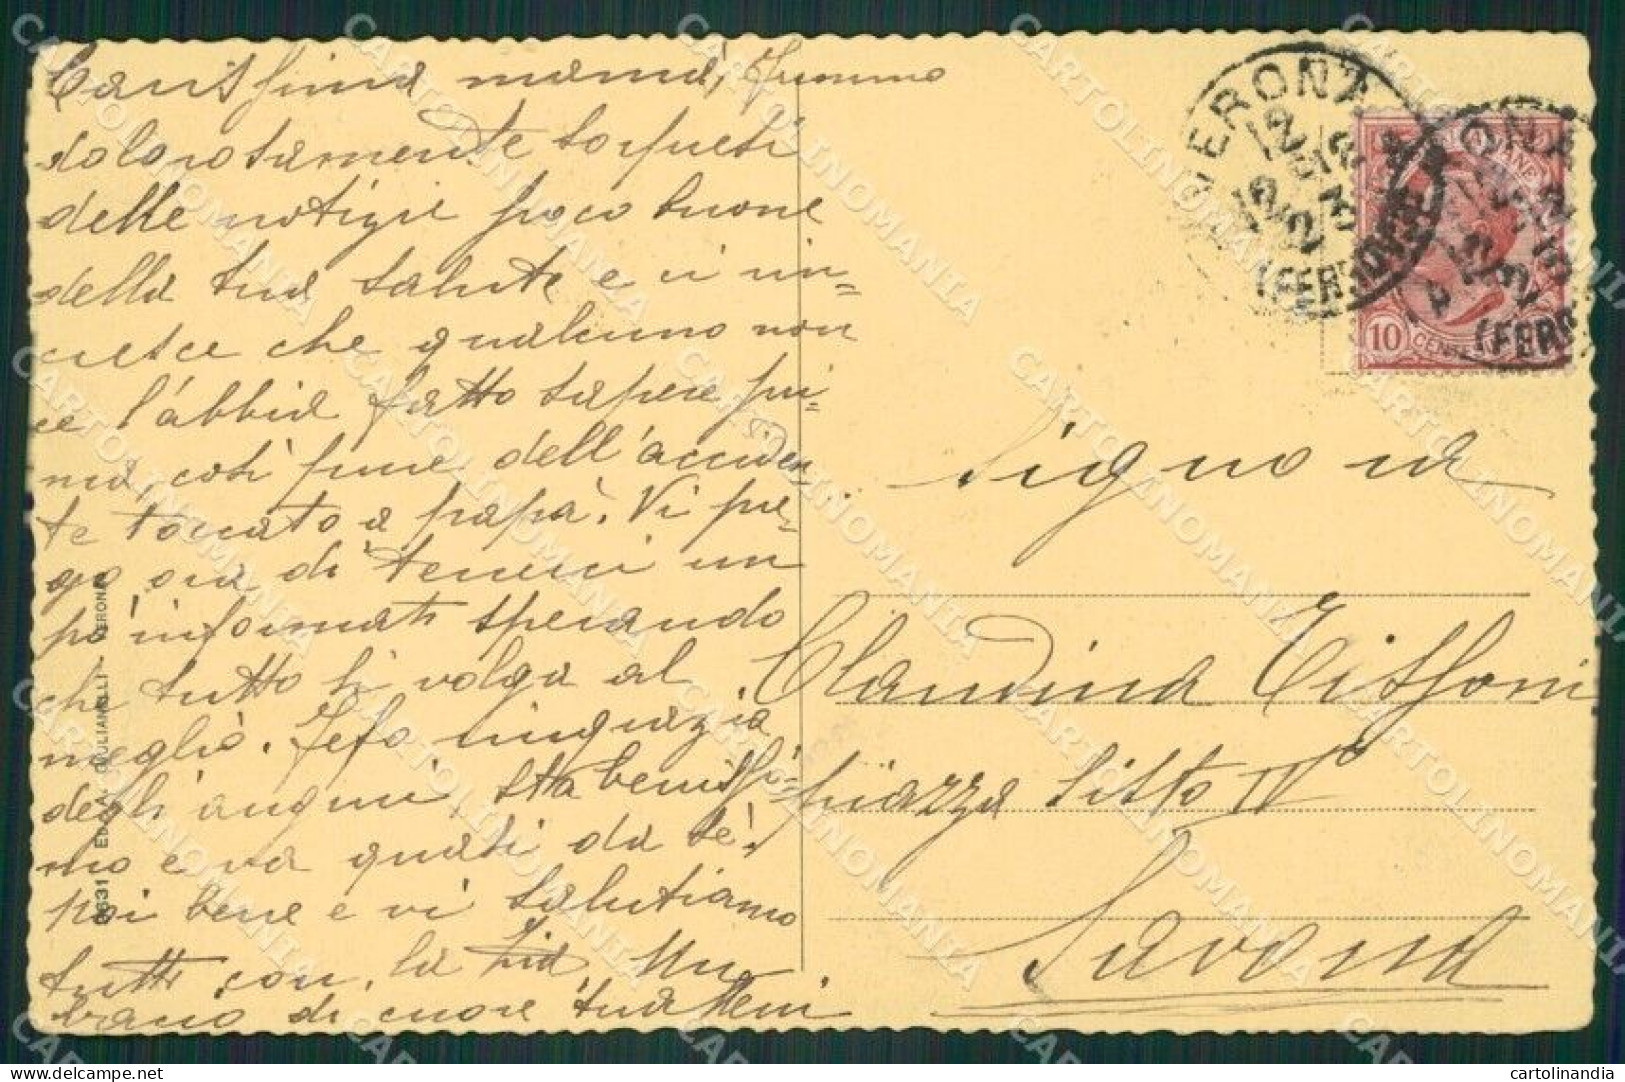 Carissima mamà, Fummo
dolorosamente sorpresi
delle notizie poco buone
della tua salute e ci in=
cresce che qualcuno non
ce l'abbia fatto sapere pri=
ma, così pure dell'acciden=
te toccato a papà. Vi pre=
go ora di tenerci un
po' informati sperando
che tutto si volga al
meglio. ringrazia
degli auguri, sta benissi=
mo e va quasi da sè.
poi bene e vi salutiamo
tutti con la zia.
di cuore tua
9631 - Ediz. A. GIULIANELLI - VERONA
VERONA
12
(FERROVIA)
POSTE ITALIANE
10 CENT
(FERR
Signora
Claudina Tissoni
piazza Sisto IVº
Savona
CARTOLINOMANIA
cartolinandia